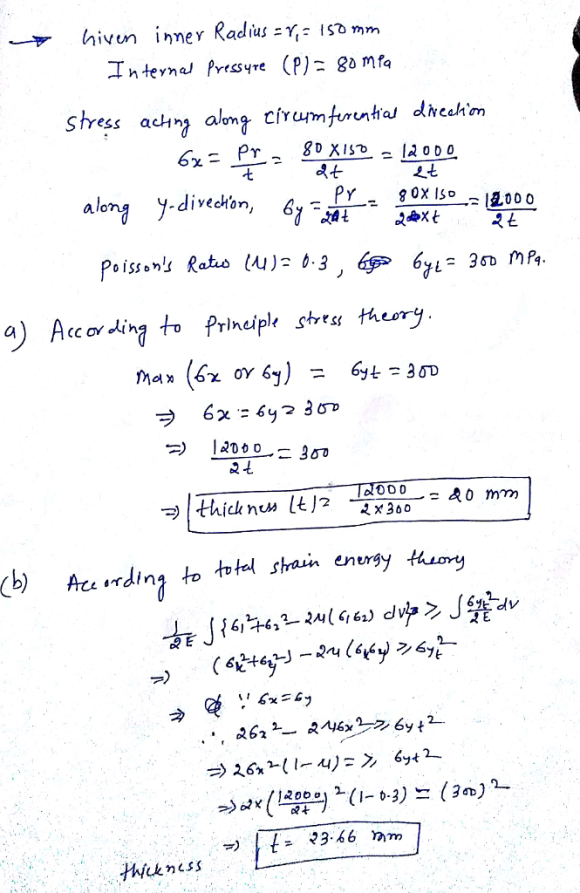 → Given inner Radius = r₁ = 150 mm
Internal Pressure (P) = 80 MPa
Stress acting along circumferential direction
6x = Pr/t = 80 X150/2t = 12000/2t
along y-direction, 6y = Pr/2t = 80X 150/2xt = 12000/2t
Poisson's Ratio (μ) = 0.3 , 6yt = 300 MPa.
a) According to Principle stress theory.
Max (6x or 6y) = 6yt = 300
⇒ 6x = 6y = 300
⇒ 12000/2t = 300
⇒ thickness (t) = 12000/2x300 = 20 mm
(b) According to total strain energy theory
1/2E ∫{6₁²+6₂² - 2μ(6₁6₂) dv} ≥ ∫ 6yt²/2E dv
⇒ (6x²+6y²) - 2μ (6x6y) ≥ 6yt²
⇒ ∵ 6x=6y
∴ 26x² - 2μ6x² ≥ 6yt²
⇒ 26x² (1-μ) = ≥ 6yt²
⇒ 2x (12000/2t)² (1-0.3) = (300)²
⇒ t = 23.66 mm
thickness